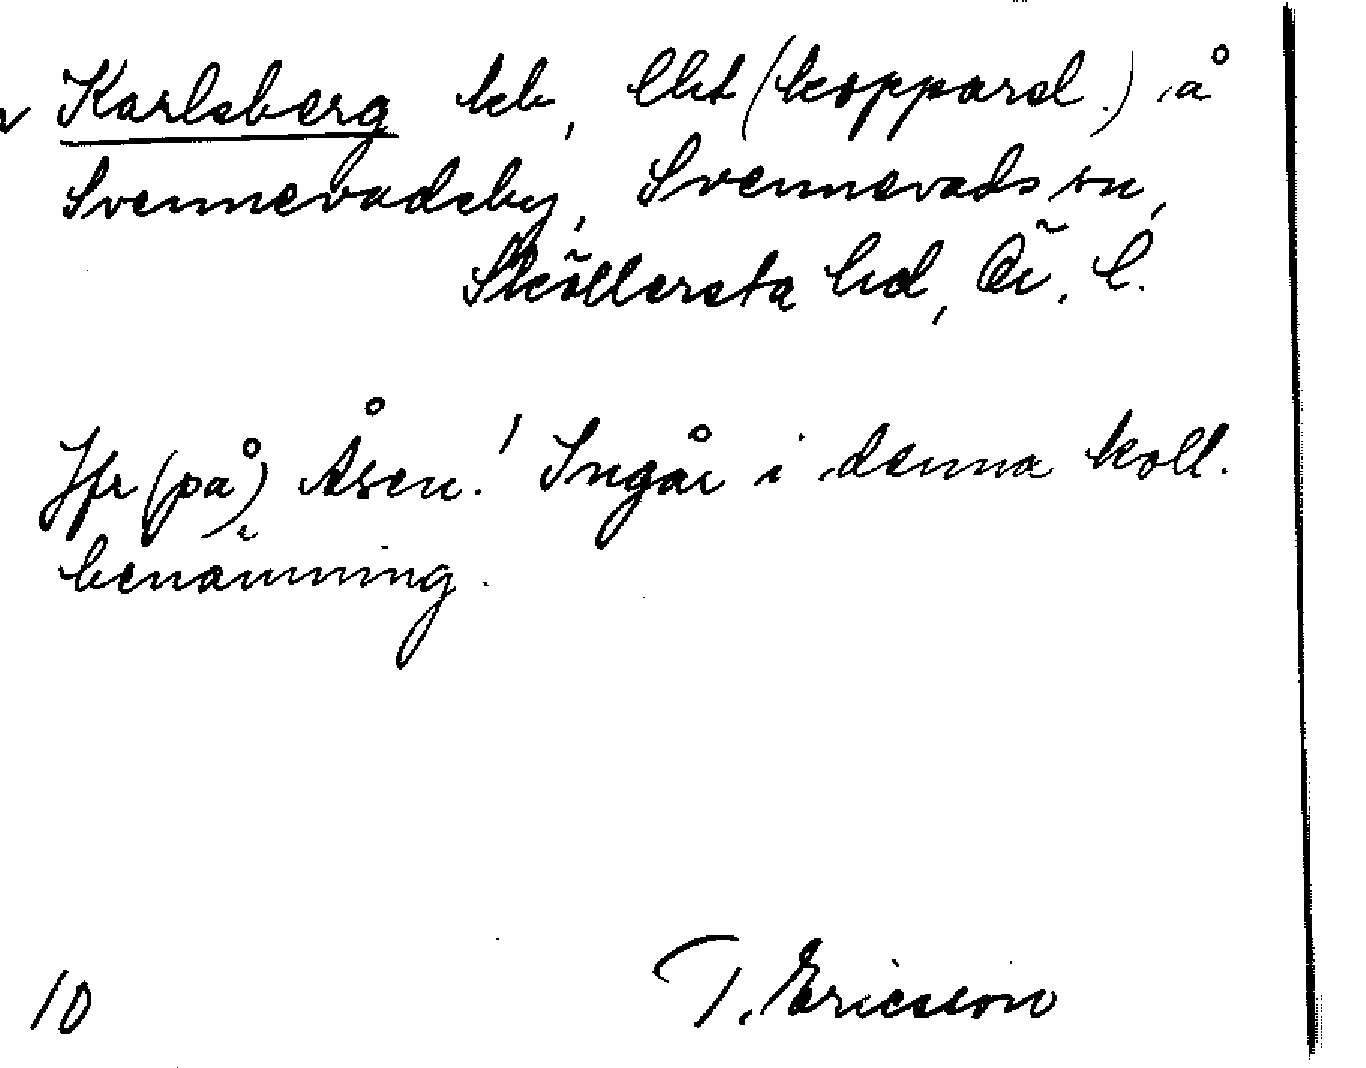 Karlsberg tch, lht (kopparsl.) å
Svennevadsby, Svennevads sn,
Sköllersta hd, Ör. l.
Jfr (på) Åsen! Ingår i denna koll.
benämning.
10 T. Ericsson